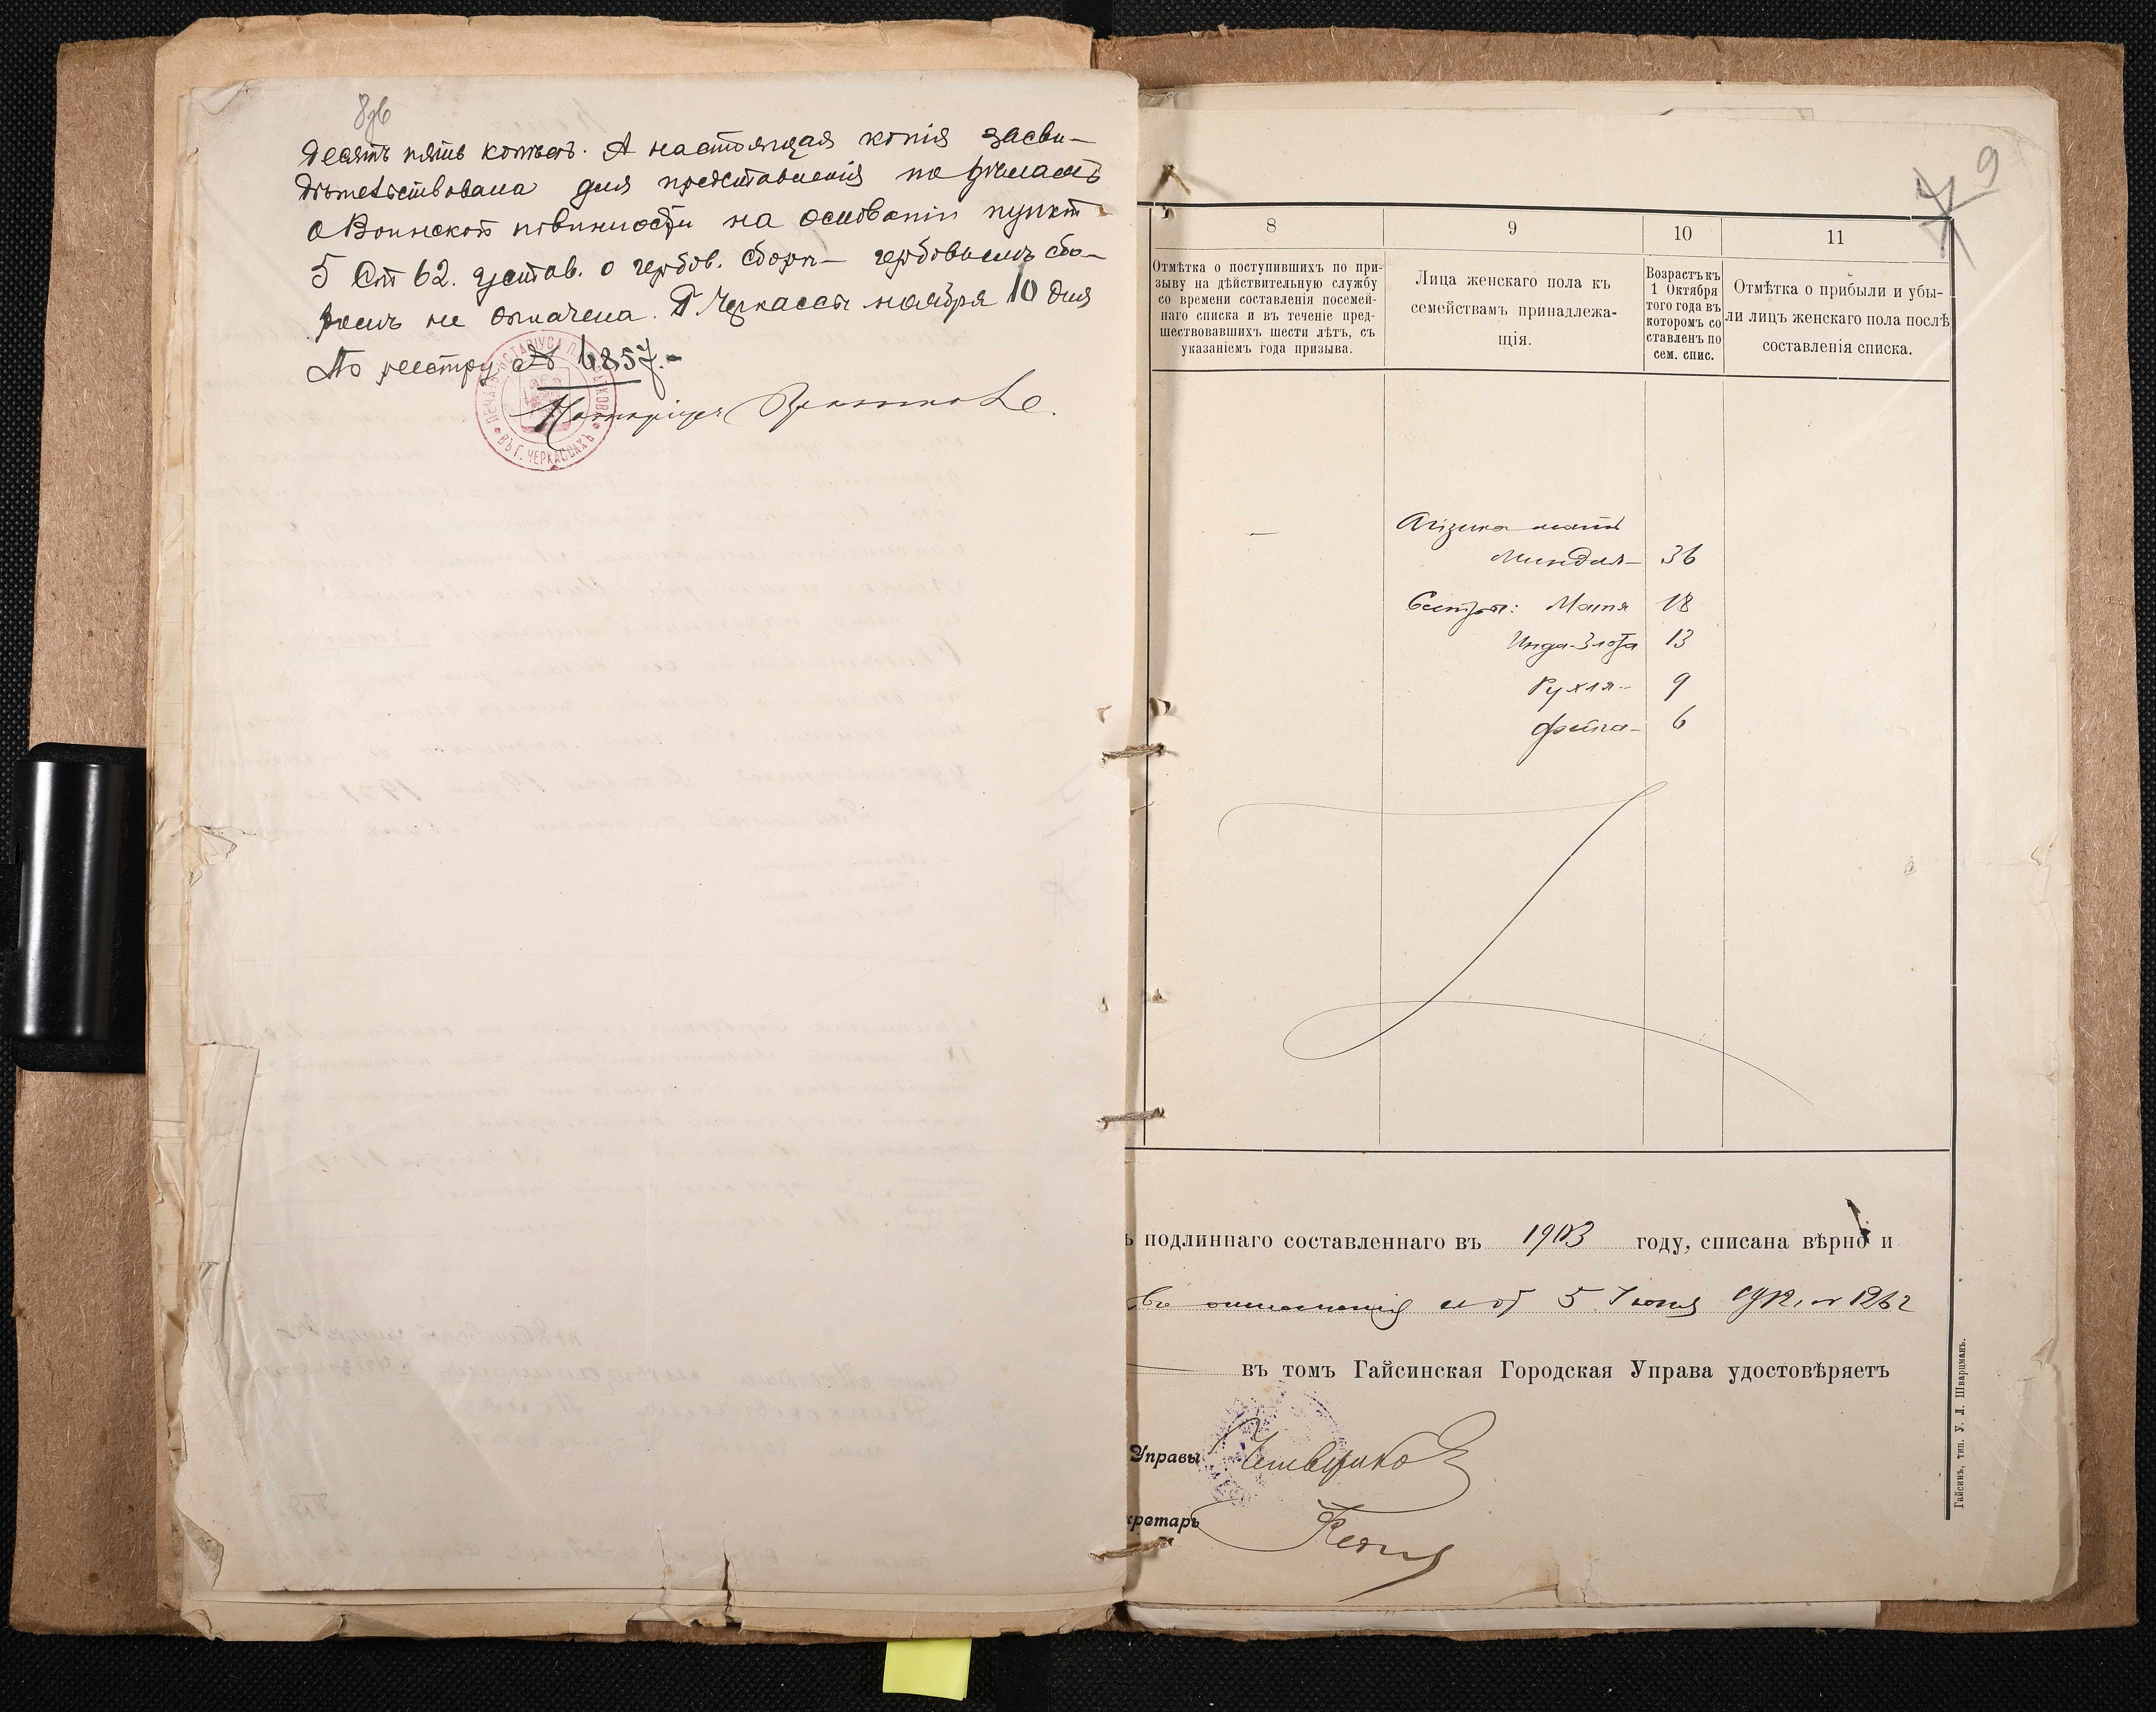 десять пять копѣекъ. А настоящая копія засви-
дѣтельствована для представленія по дѣламъ
о Воинской повинности на основаніи пункт
5 Ст 62. устав. о гербов. сборѣ – гербовымъ сбо-
ромъ не оплачена. Г Черкассы ноября 10 дня
По реестру № 6857.-
Нотаріусъ
ВЪ Г. ЧЕРКАССАХЪ
9
8
9
10
11
Отмѣтка о поступившихъ по при-
зыву на дѣйствительную службу
со времени составленія посемей-
наго списка и въ теченіе пред-
шествовавшихъ шести лѣтъ, съ
указаніемъ года призыва.
Лица женскаго пола къ
семействамъ принадлежа-
щія.
Возрастъ къ
1 Октября
того года въ
которомъ со
ставленъ по
сем. спис.
Отмѣтка о прибыли и убы-
ли лицъ женскаго пола послѣ
составленія списка.
мать
Миндля – 36
Сестры: Матя 18
Инда-Злота 13
Рухля – 9
Фейга – 6
ь подлиннаго составленнаго въ 1903 году, списана вѣрно и
отношенія отъ 5 Іюня 1912 г. № 1262
въ томъ Гайсинская Городская Управа удостовѣряетъ
Управы
кретарь
Гайсинъ, тип. У. Л. Шварцманъ.